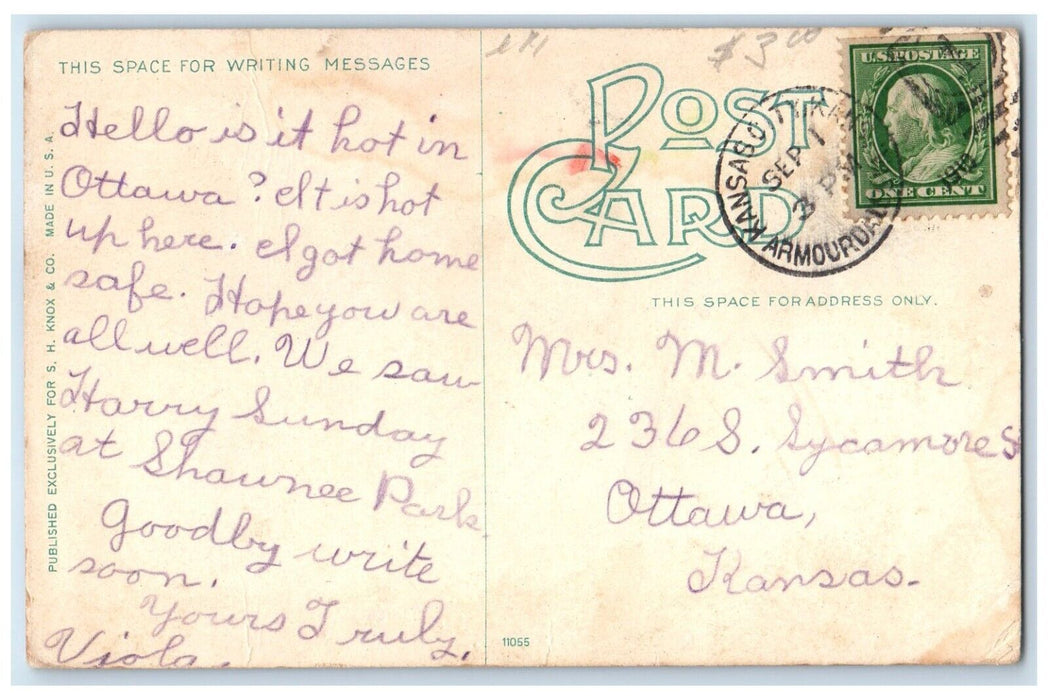 THIS SPACE FOR WRITING MESSAGES
Hello is it hot in
Ottawa? It is hot
up here. I got home
safe. Hope you are
all well. We saw
Harry Sunday
at Shawnee Park
Goodby write
soon.
Yours Truly,
Viola.
PUBLISHED EXCLUSIVELY FOR S. H. KNOX & CO. MADE IN U. S. A.
$3.00
POST
CARD
U.S. POSTAGE
ONE CENT
KANSAS
SEP 1
3 PM
ARMOURDALE
THIS SPACE FOR ADDRESS ONLY.
Mrs. M. Smith
236 S. Sycamore St
Ottawa,
Kansas.
11055